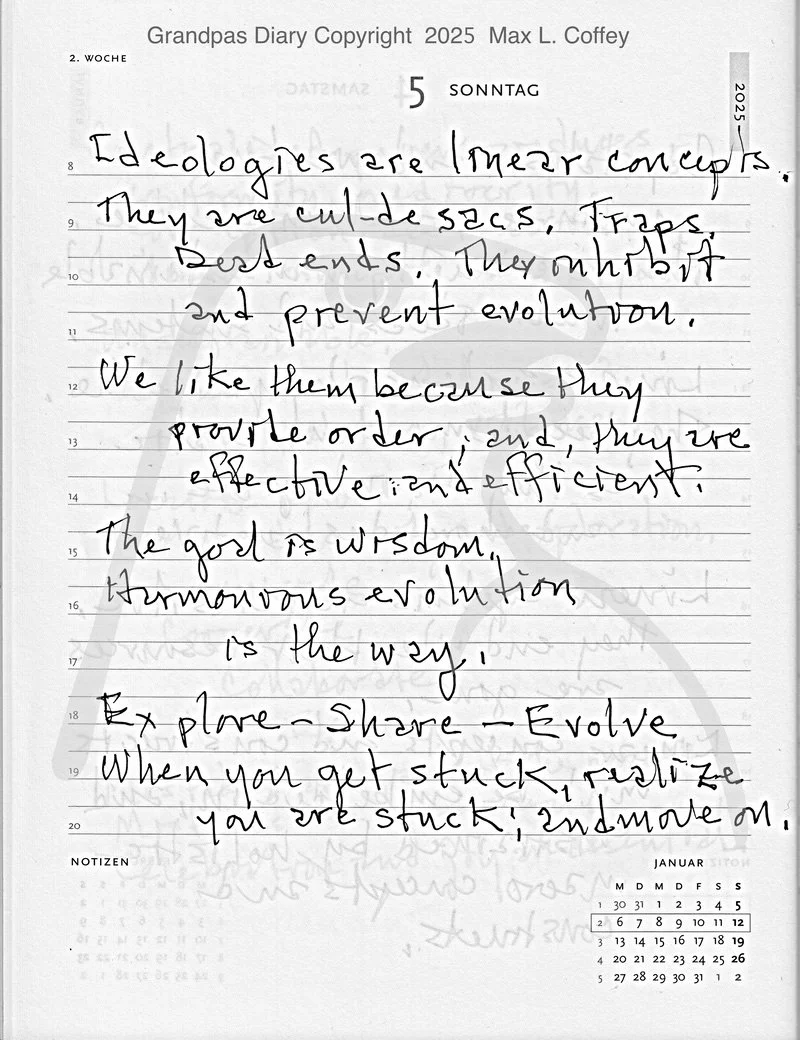 Grandpas Diary Copyright 2025 Max L. Coffey
2. WOCHE
5 SONNTAG
2025
8 Ideologies are linear concepts.
9 They are cul-de sacs, Traps,
10 Dead ends. They inhibit
11 and prevent evolution.
12 We like them because they
13 provide order; and, they are
14 effective and efficient.
15 The goal is wisdom.
16 Harmonious evolution
17 is the way.
18 Explore - Share - Evolve
19 When you get stuck, realize
20 you are stuck; and move on.
NOTIZEN
JANUAR
M D M D F S S
1 30 31 1 2 3 4 5
2 6 7 8 9 10 11 12
3 13 14 15 16 17 18 19
4 20 21 22 23 24 25 26
5 27 28 29 30 31 1 2